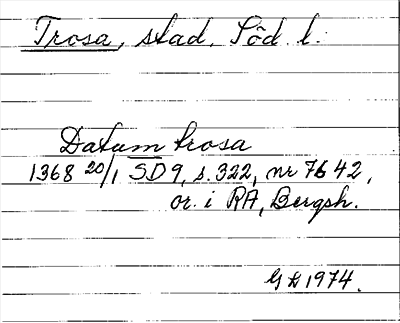 Trosa, stad. Söd l.
Datum trosa
1368 20/1 SD 9, s. 322, nr 7642,
or. i RA, Bergsh.
1974.